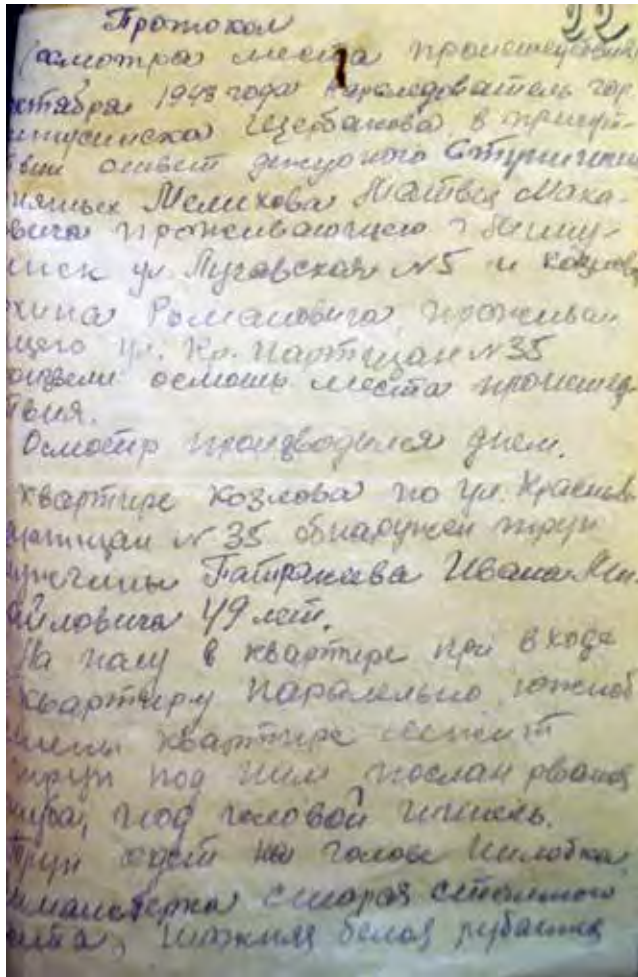 22
Протокол
осмотра места происшествия
октября 1943 года нарследователь гор.
инусинска Щербакова, в присут-
твии дежурного Ступницк
нятых Мелихова Матвея Мака-
овича проживающего г. Мину-
инск ул. Луговская №5 и Козлова
Романовича, прожива
щего ул. Кр. Партизан №35
оизвели осмотр места происшед
твия.
Осмотр производился днем.
квартире Козлова по ул. Красных
артизан №35 обнаружен труп
ужчины Ивана Ми
айловича 49 лет.
На полу в квартире при входе
квартиру паралельно южной
стены квартире лежит
труп под ним послан рваная
шуба, под головой шинель.
Труп одет на голове пилотка
имнастерка старая стального
вета, нижняя белая рубашка